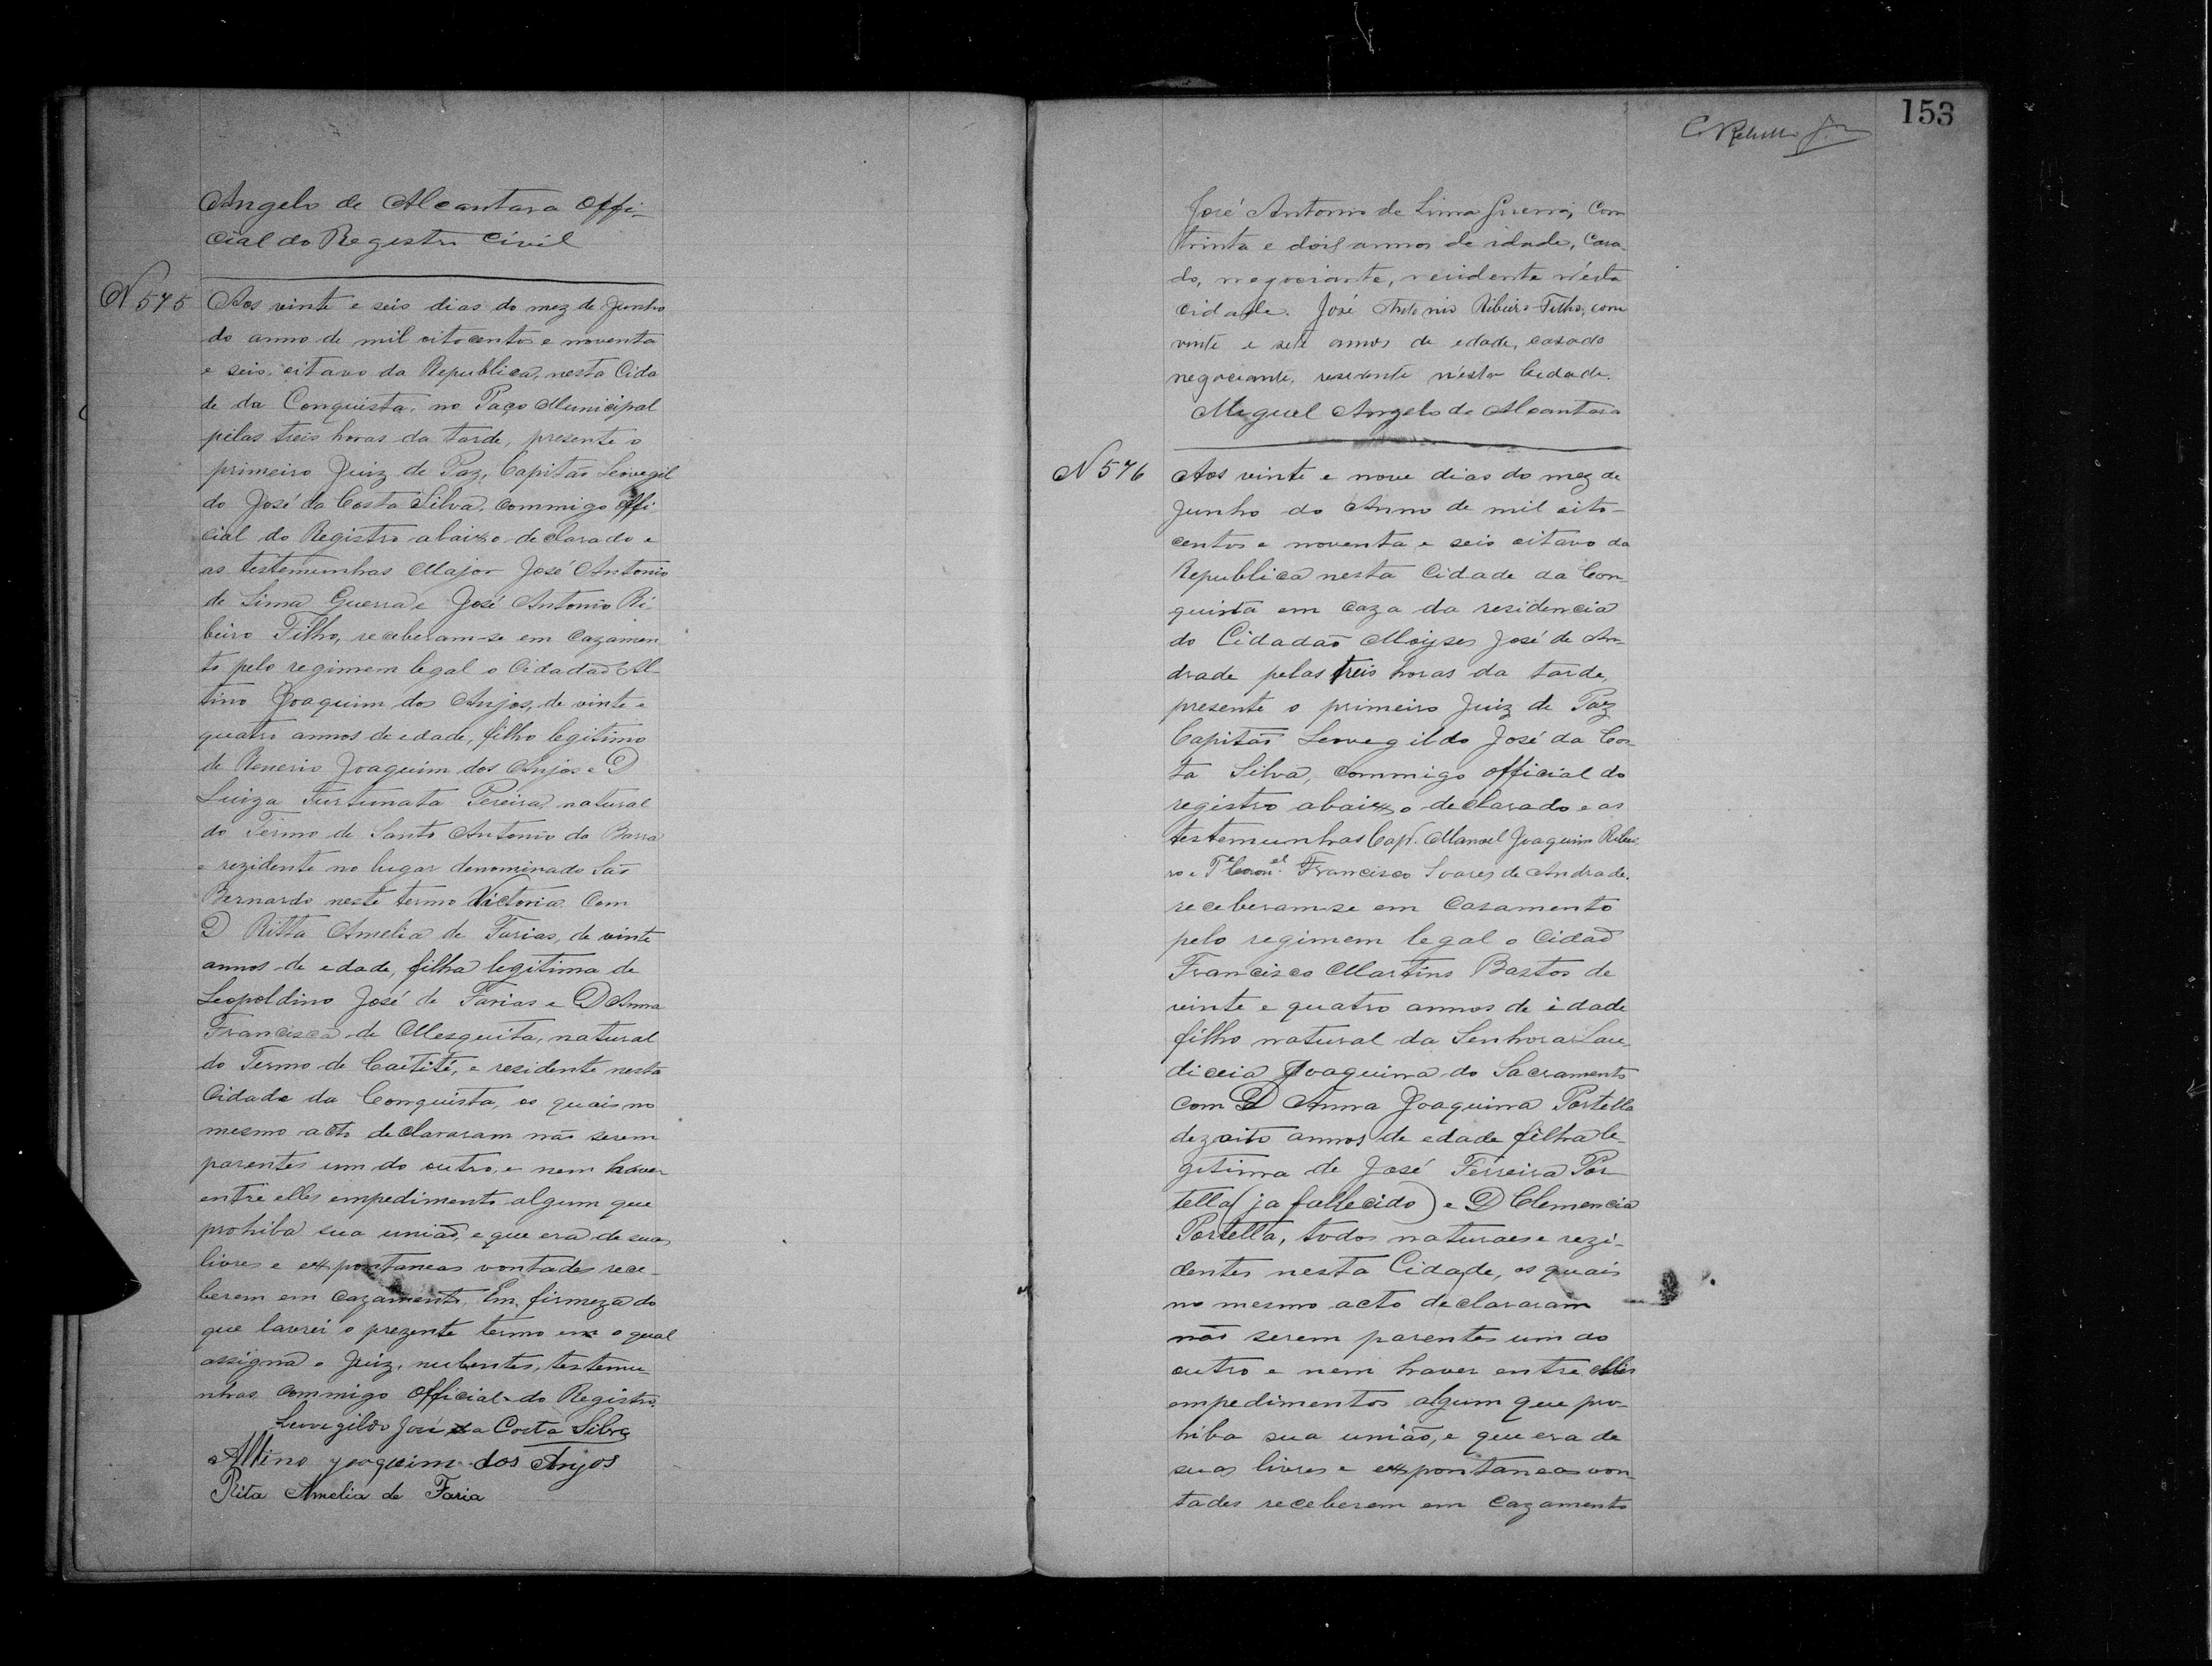 Angelo de Alcantara Offi-
cial do Registro Civil
N 575
Aos vinte e seis dias do mez de Junho
do anno de mil oitocentos e noventa
e seis, oitavo da Republica, nesta Cida
de da Conquista, no Paço Municipal
pelas treis horas da tarde, presente o
primeiro Juiz de Paz, Capitão Leovegil
do José da Costa Silva, commigo Offi
cial do Registro abaixo declarado e
as testemunhas Major José Antonio
de Lima Guerra e José Antonio Ri-
beiro Filho, receberam-se em Cazamen
to pelo regimem legal o Cidadão Al-
tino Joaquim dos Anjos, de vinte e
quatro annos de edade, filho legitimo
de Venerio Joaquim dos Anjos e D
Luiza Furtunata Pereira, natural
do Termo de Santo Antonio da Barra
e rezidente no lugar denominado São
Bernardo neste termo Victoria. Com
D Ritta Amelia de Farias, de vinte
annos de edade, filha legitima de
Leopoldino José de Farias e D Anna
Francisca de Mesquita, natural
do Termo de Caetité, e residente nesta
Cidade da Conquista, os quais no
mesmo acto declararam não serem
parentes um do outro, e nem haver
entre elles empedimento algum que
prohiba sua união, e que era de suas
livres e expontaneas vontades rece-
berem em Cazamento. Em firmeza do
que lavrei o prezente termo em o qual
assigna o Juiz, nubentes, testemu-
nhas commigo Official do Registro.
Leovegildo José da Costa Silva
Altino Joaquim dos Anjos
Rita Amelia de Faria
153
José Antonio de Lima Guerra, Com
trinta e dois annos de idade, Casa-
do, negociante, residente n'esta
cidade. José Antonio Ribeiro Filho, com
vinte e sete annos de edade, casado
negociante, residente n'esta Cidade.
Miguel Angelo de Alcantara
N 576
Aos vinte e nove dias do mez de
Junho do Anno de mil oito-
centos e noventa e seis oitavo da
Republica nesta Cidade da Con-
quista em caza da residencia
do Cidadão Moyses José de An-
drade pelas treis horas da tarde,
presente o primeiro Juiz de Paz
Capitão Leovegildo José da Cos-
ta Silva, commigo official do
registro abaixo declarado e as
testemunhas Capm. Manoel Joaquim Ribei
ro e Te Coronel Francisco Soares de Andrade.
receberam-se em Casamento
pelo regimem legal o Cidaõ
Francisco Martins Bastos de
vinte e quatro annos de idade
filho natural da Senhora Lau
diceia Joaquina do Sacramento
com D Anna Joaquina Portella
dezoito annos de edade filha le-
gitima de José Ferreira Por-
tella (ja fallecido) e D Clemencia
Portella, todos naturaes e rezi-
dentes nesta Cidade, os quais
no mesmo acto declararam
não serem parentes um do
outro e nem haver entre elles
empedimentos algum que pro-
hiba sua união, e que era de
suas livres e expontaneas von-
tades receberem em Cazamento